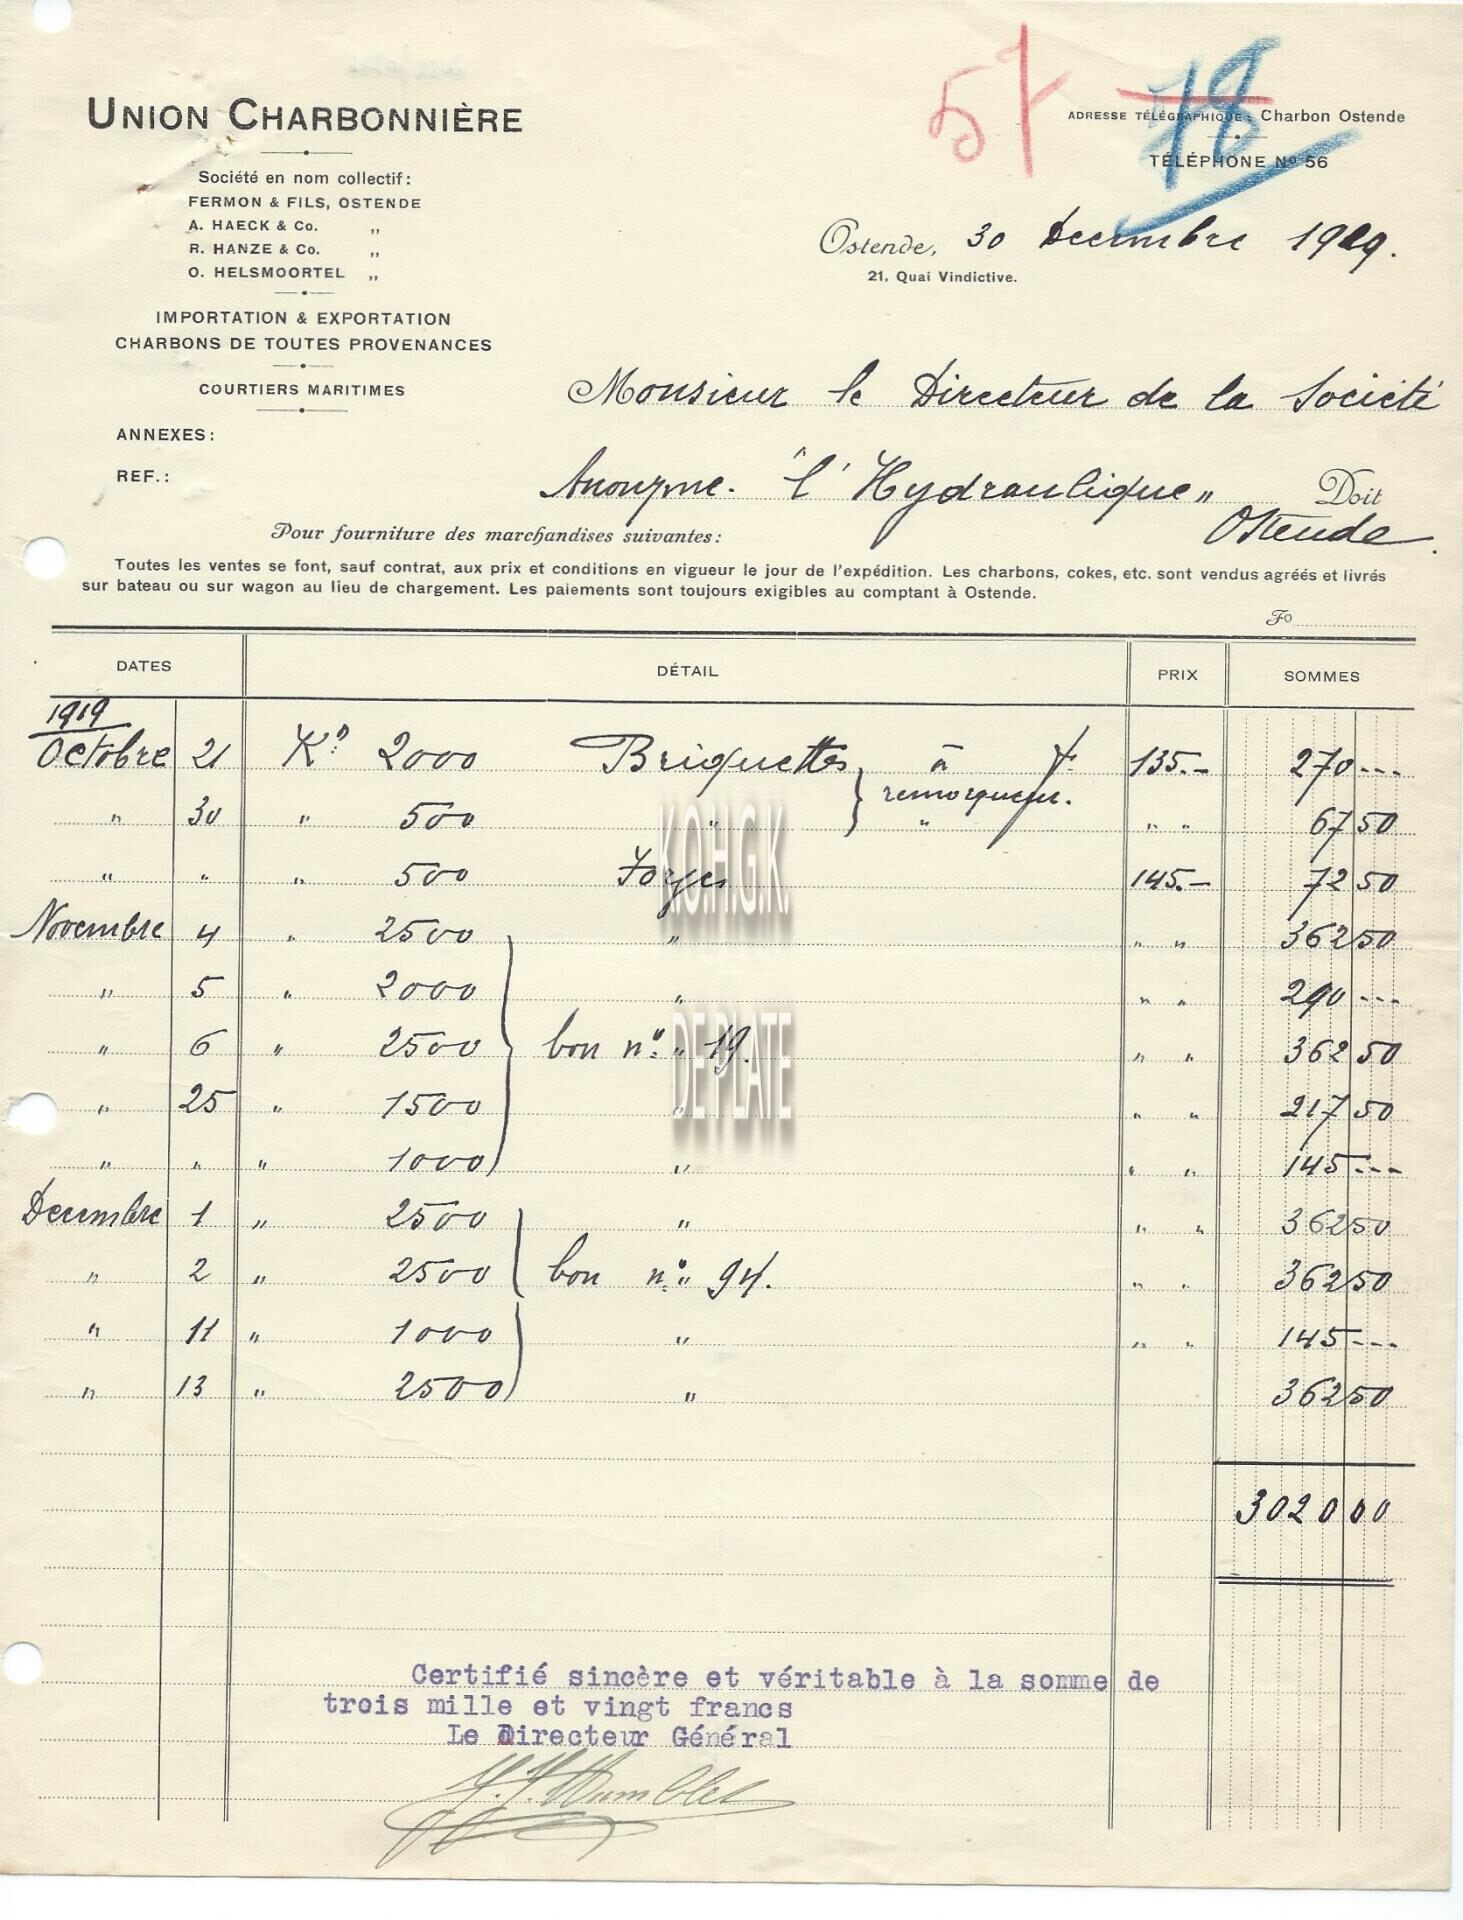 57
78
UNION CHARBONNIÈRE
ADRESSE TÉLÉGRAPHIQUE: Charbon Ostende
TÉLÉPHONE No 56
Société en nom collectif:
FERMON & FILS, OSTENDE
A. HAECK & Co. ,,
R. HANZE & Co. ,,
O. HELSMOORTEL ,,
Ostende, 30 Decembre 1919.
21, Quai Vindictive.
IMPORTATION & EXPORTATION
CHARBONS DE TOUTES PROVENANCES
COURTIERS MARITIMES
ANNEXES:
REF.:
Monsieur le Directeur de la Société
Anonyme. "l'Hydraulique" Doit
Ostende.
Pour fourniture des marchandises suivantes:
Toutes les ventes se font, sauf contrat, aux prix et conditions en vigueur le jour de l'expédition. Les charbons, cokes, etc. sont vendus agréés et livrés
sur bateau ou sur wagon au lieu de chargement. Les paiements sont toujours exigibles au comptant à Ostende.
Fo
DATES DÉTAIL PRIX SOMMES
1919
Octobre 21 Ko 2000 Briquettes à f. 135.- 270 ---
remorqueur.
" 30 " 500 " " " " 67 50
" " " 500 Forges 145.- 72 50
Novembre 4 " 2500 " " " 362 50
" 5 " 2000 " " " 290 ---
" 6 " 2500 bon no " 19. " " 362 50
" 25 " 1500 " " " 217 50
" " " 1000 " " " 145 ---
Decembre 1 " 2500 " " " 362 50
" 2 " 2500 bon no " 94. " " 362 50
" 11 " 1000 " " " 145 ---
" 13 " 2500 " 362 50
3020 00
K.O.H.G.K.
DE PLATE
Certifié sincère et véritable à la somme de
trois mille et vingt francs
Le Directeur Général